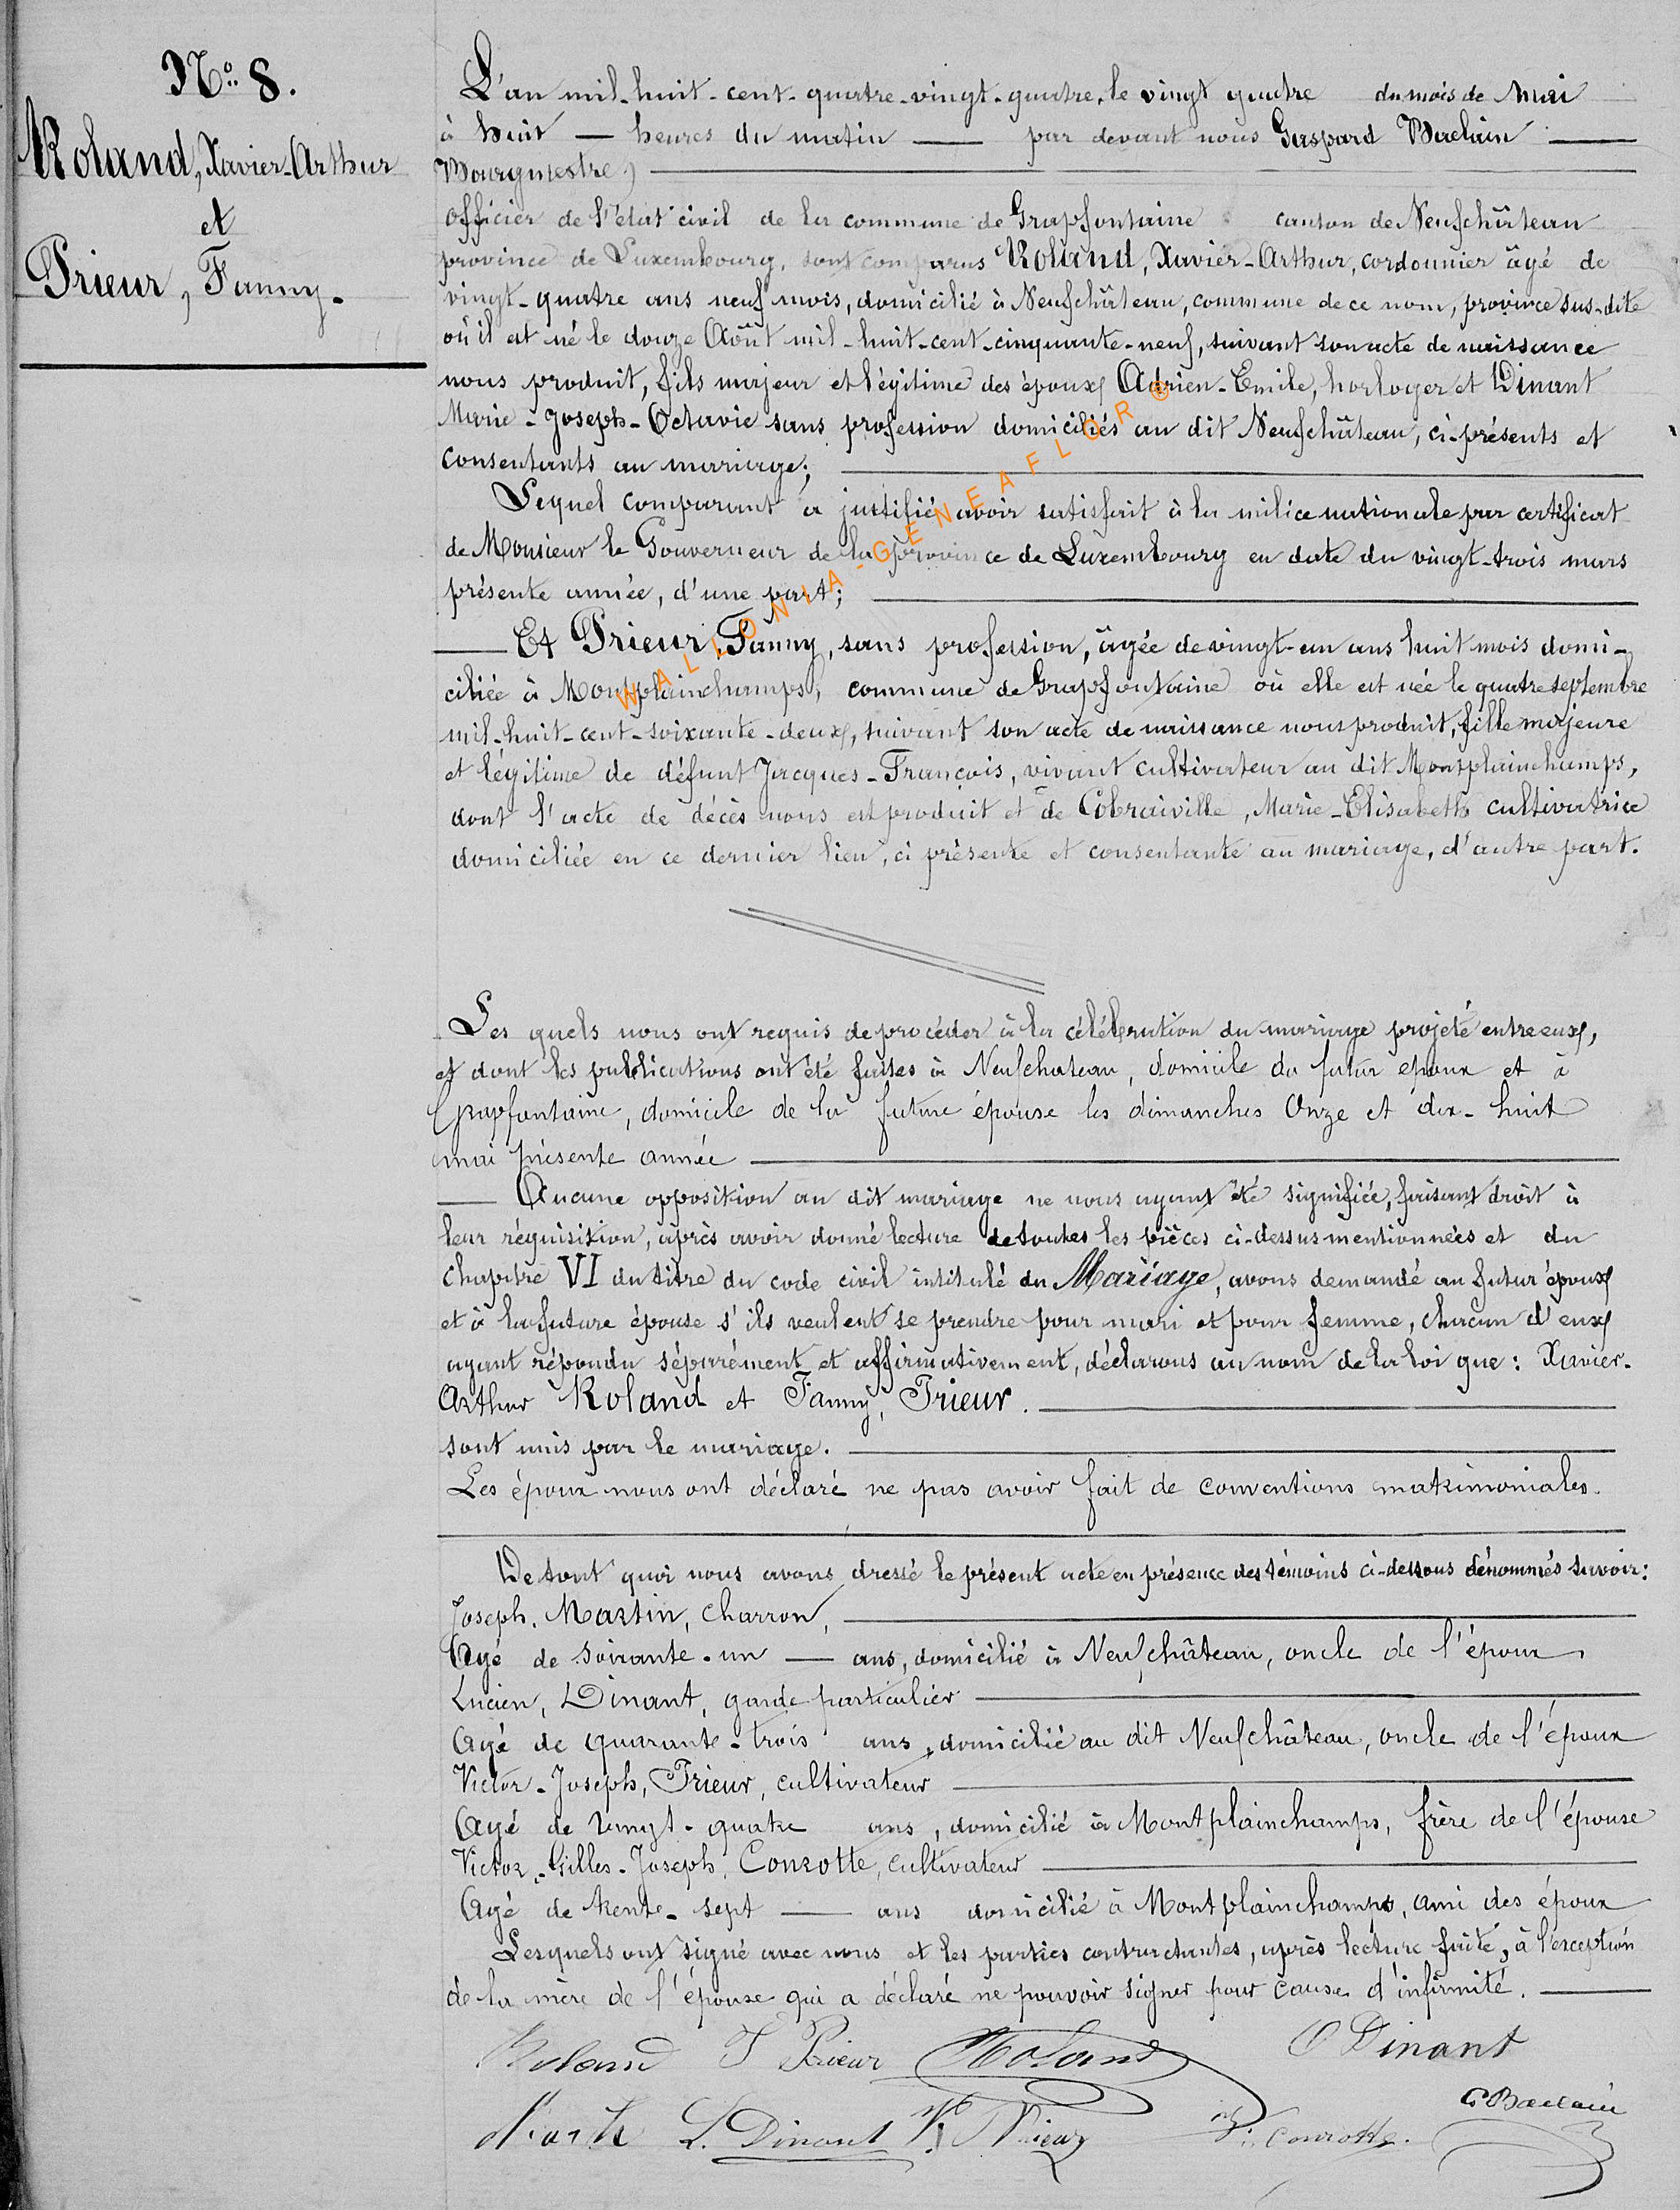 No. 8.
Roland, Xavier-Arthur
et
Prieur, Fanny.
L'an mil-huit-cent-quatre-vingt-quatre, le vingt quatre du mois de Mai
à huit — heures du matin — par devant nous Gaspard Baclain —
Bourgmestre,
officier de l'état civil de la commune de Grapfontaine canton de Neufchâteau
province de Luxembourg, sont comparus Roland, Xavier-Arthur, cordonnier âgé de
vingt-quatre ans neuf mois, domicilié à Neufchâteau, commune de ce nom, province sus-dite
où il est né le douze Août mil-huit-cent-cinquante-neuf, suivant son acte de naissance
nous produit, fils majeur et légitime des époux Adrien-Emile, horloger et Dinant
Marie-Joseph-Octavie sans profession domiciliés au dit Neufchâteau, ci-présents et
consentants au mariage;
Lequel comparant a justifié avoir satisfait à la milice nationale par certificat
de Monsieur le Gouverneur de la province de Luxembourg en date du vingt-trois mars
présente année, d'une part;
— Et Prieur, Fanny, sans profession, âgée de vingt-un ans huit mois domi-
ciliée à Montplainchamps, commune de Grapfontaine où elle est née le quatre septembre
mil-huit-cent-soixante-deux, suivant son acte de naissance nous produit, fille majeure
et légitime de défunt Jacques-François, vivant cultivateur au dit Montplainchamps,
dont l'acte de décès nous est produit et de Cobraiville, Marie-Elisabeth cultivatrice
domiciliée en ce dernier lieu, ci présente et consentante au mariage, d'autre part.
Les quels nous ont requis de procéder à la célébration du mariage projeté entre eux,
et dont les publications ont été faites à Neufchateau, domicile du futur epoux et à
Grapfontaine, domicile de la future épouse les dimanches Onze et dix-huit
mai présente année
— Aucune opposition au dit mariage ne nous ayant été signifiée, faisant droit à
leur réquisition, après avoir donné lecture de toutes les pièces ci-dessus mentionnées et du
chapitre VI du titre du code civil intitulé du Mariage, avons demandé au futur époux
et à la future épouse s'ils veulent se prendre pour mari et pour femme, chacun d'eux
ayant répondu séparément et affirmativement, déclarons au nom de la loi que: Xavier-
Arthur Roland et Fanny, Prieur.
sont unis par le mariage.
Les époux nous ont déclaré ne pas avoir fait de conventions matrimoniales.
De tout quoi nous avons dressé le présent acte en présence des témoins ci-dessous dénommés savoir:
Joseph, Martin, charron,
Agé de soixante-un — ans, domicilié à Neufchâteau, oncle de l'époux
Lucien, Dinant, garde particulier
Agé de quarante-trois ans, domicilié au dit Neufchâteau, oncle de l'époux
Victor-Joseph, Prieur, cultivateur
Agé de vingt-quatre ans, domicilié à Montplainchamps, frère de l'épouse
Victor-Gilles-Joseph, Conrotte, cultivateur
Agé de trente-sept — ans domicilié à Montplainchamps, ami des époux
Lesquels ont signé avec nous et les parties contractantes, après lecture faite, à l'exception
de la mère de l'épouse qui a déclaré ne pouvoir signer pour cause d'infirmité.
Roland F Prieur Roland O Dinant
L. Dinant V. J Prieur Conrotte. G Baclain
WALLONIA-GENEAFLOR ®